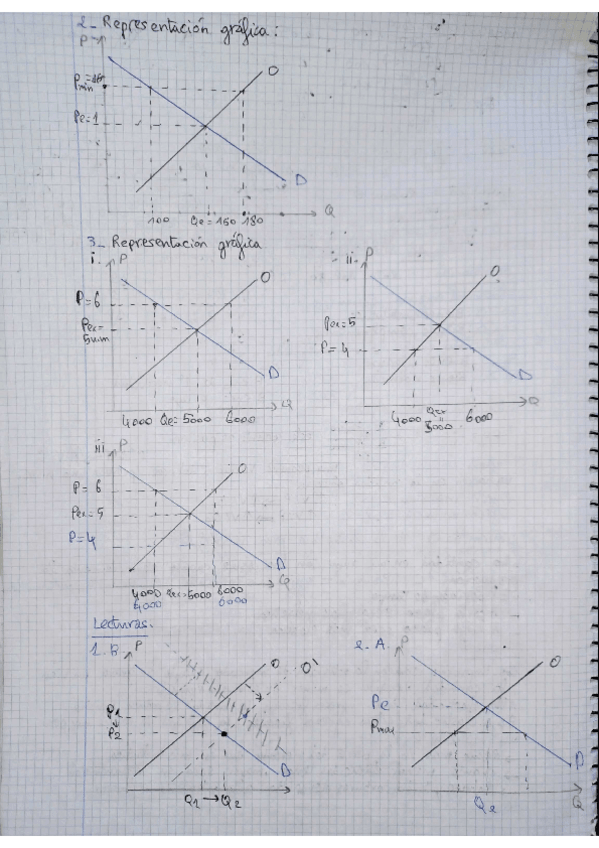 2_ Representación gráfica:
P
O
Pmin
Pe=1
D
100 Qe=160 180 Q
3_ Representación gráfica
i. P
O
P=6
Pex=
5um
D
4000 Qe=5000 6000 Q
ii. P
O
Pex=5
P=4
D
4000 Qex= 6000 Q
5000
iii P
O
P=6
Pex=5
P=4
D
4000 Qex=5000 6000 Q
4000 6000
Lecturas.
1. B. P
O O'
P1
P2
D
Q1→Q2
2. A. P
O
Pe
Pmax
D
Qe Q